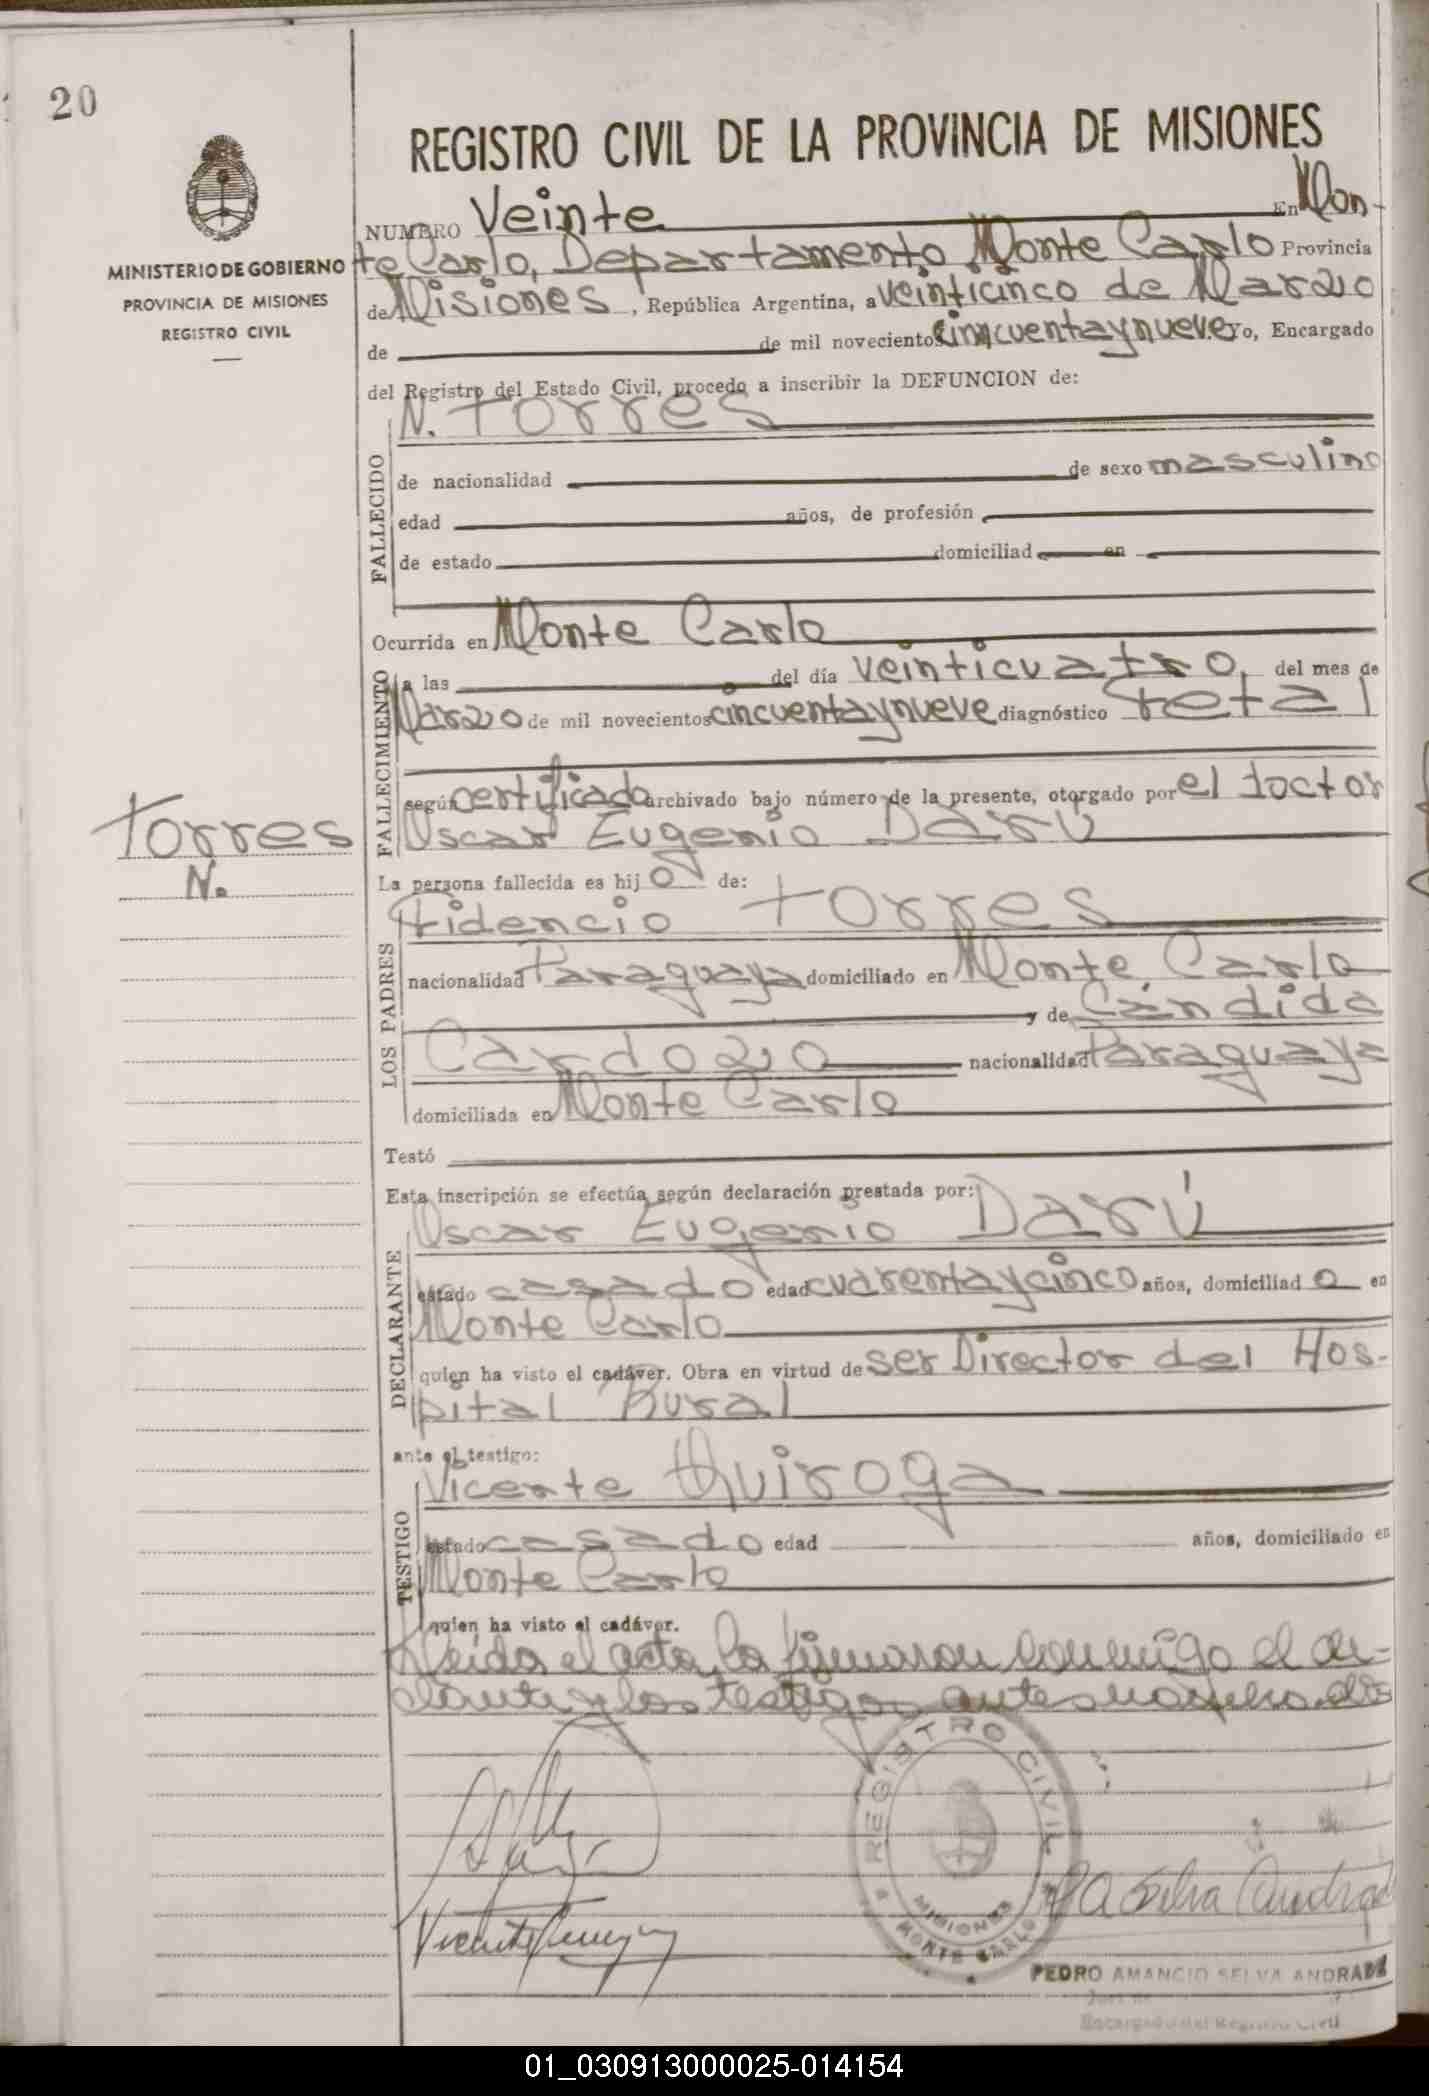 20
REGISTRO CIVIL DE LA PROVINCIA DE MISIONES
MINISTERIO DE GOBIERNO
PROVINCIA DE MISIONES
REGISTRO CIVIL
NUMERO Veinte En Mon-
te Carlo, Departamento Monte Carlo Provincia
de Misiones, República Argentina, a veinticinco de Marzo
de de mil novecientos cincuentaynueve. Yo, Encargado
del Registro del Estado Civil, procedo a inscribir la DEFUNCION de:
N. Torres
FALLECIDO
de nacionalidad de sexo masculino
edad años, de profesión
de estado domiciliad en
Ocurrida en Monte Carlo
FALLECIMIENTO
a las del día veinticuatro, del mes de
Marzo de mil novecientos cincuentaynueve diagnóstico Fetal
según certificado archivado bajo número de la presente, otorgado por el doctor
Oscar Eugenio Darú
Torres
N.
La persona fallecida es hijo de:
LOS PADRES
Fidencio Torres
nacionalidad Paraguaya domiciliado en Monte Carlo
y de Cándida
Cardozo nacionalidad Paraguaya
domiciliada en Monte Carlo
Testó
Esta inscripción se efectúa según declaración prestada por:
DECLARANTE
Oscar Eugenio Darú
estado casado edad cuarentaycinco años, domiciliado en
Monte Carlo
quien ha visto el cadáver. Obra en virtud de ser Director del Hos-
pital Rural
ante el testigo:
TESTIGO
Vicente Quiroga
estado casado edad años, domiciliado en
Monte Carlo
quien ha visto el cadáver.
Leída el acta, la firmaron conmigo el de-
y los testigos antes
REGISTRO CIVIL
MISIONES
MONTE CARLO
PEDRO AMANCIO SELVA ANDRADE
Encargado del Registro Civil
01_030913000025-014154